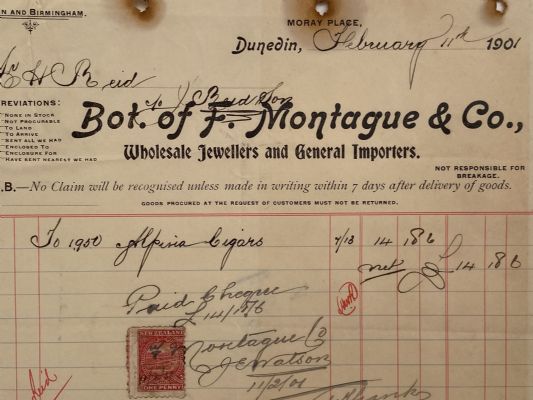 N AND BIRMINGHAM.
MORAY PLACE,
Dunedin, February 11th 1901
H Reid
to J Reid & Son
REVIATIONS:
NONE IN STOCK
NOT PROCURABLE
TO LAND
TO ARRIVE
SENT ALL WE HAD
ENCLOSED TO
ENCLOSURE FOR
HAVE SENT NEAREST WE HAD
Bot. of F. Montague & Co.,
Wholesale Jewellers and General Importers.
NOT RESPONSIBLE FOR
BREAKAGE.
.B.—No Claim will be recognised unless made in writing within 7 days after delivery of goods.
GOODS PROCURED AT THE REQUEST OF CUSTOMERS MUST NOT BE RETURNED.
To 1,950 Alpina Cigars 7/13 14 18 6
nett £ 14 18 6
Paid Cheque
£14/18/6
NEW ZEALAND
ONE PENNY
F Montague & Co
J E Watson
11/2/01
Thanks
Paid